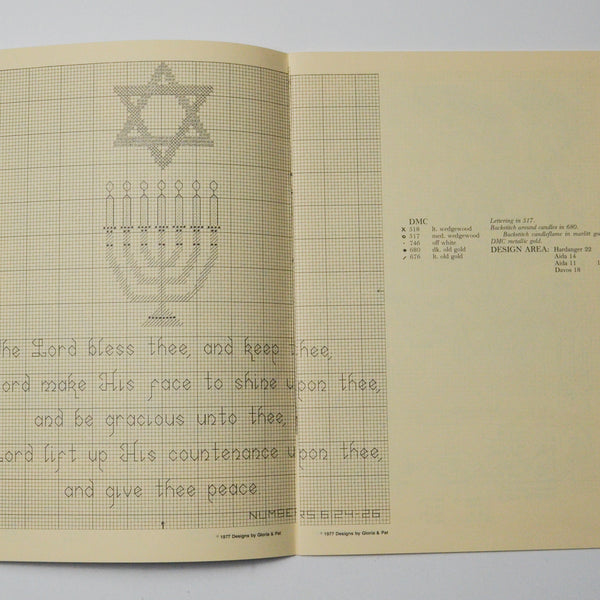 he Lord bless thee, and keep thee,
ord make His face to shine upon thee,
and be gracious unto thee,
Lord lift up His countenance upon thee,
and give thee peace.
NUMBERS 6:24-26
© 1977 Designs by Gloria & Pat
© 1977 Designs by Gloria & Pat
DMC
518 lt. wedgewood
517 med. wedgewood
746 off white
680 dk. old gold
676 lt. old gold
Lettering in 517.
Backstitch around candles in 680.
Backstitch candleflame in marlitt
DMC metallic gold.
DESIGN AREA: Hardanger 22
Aida 14
Aida 11
Davos 18